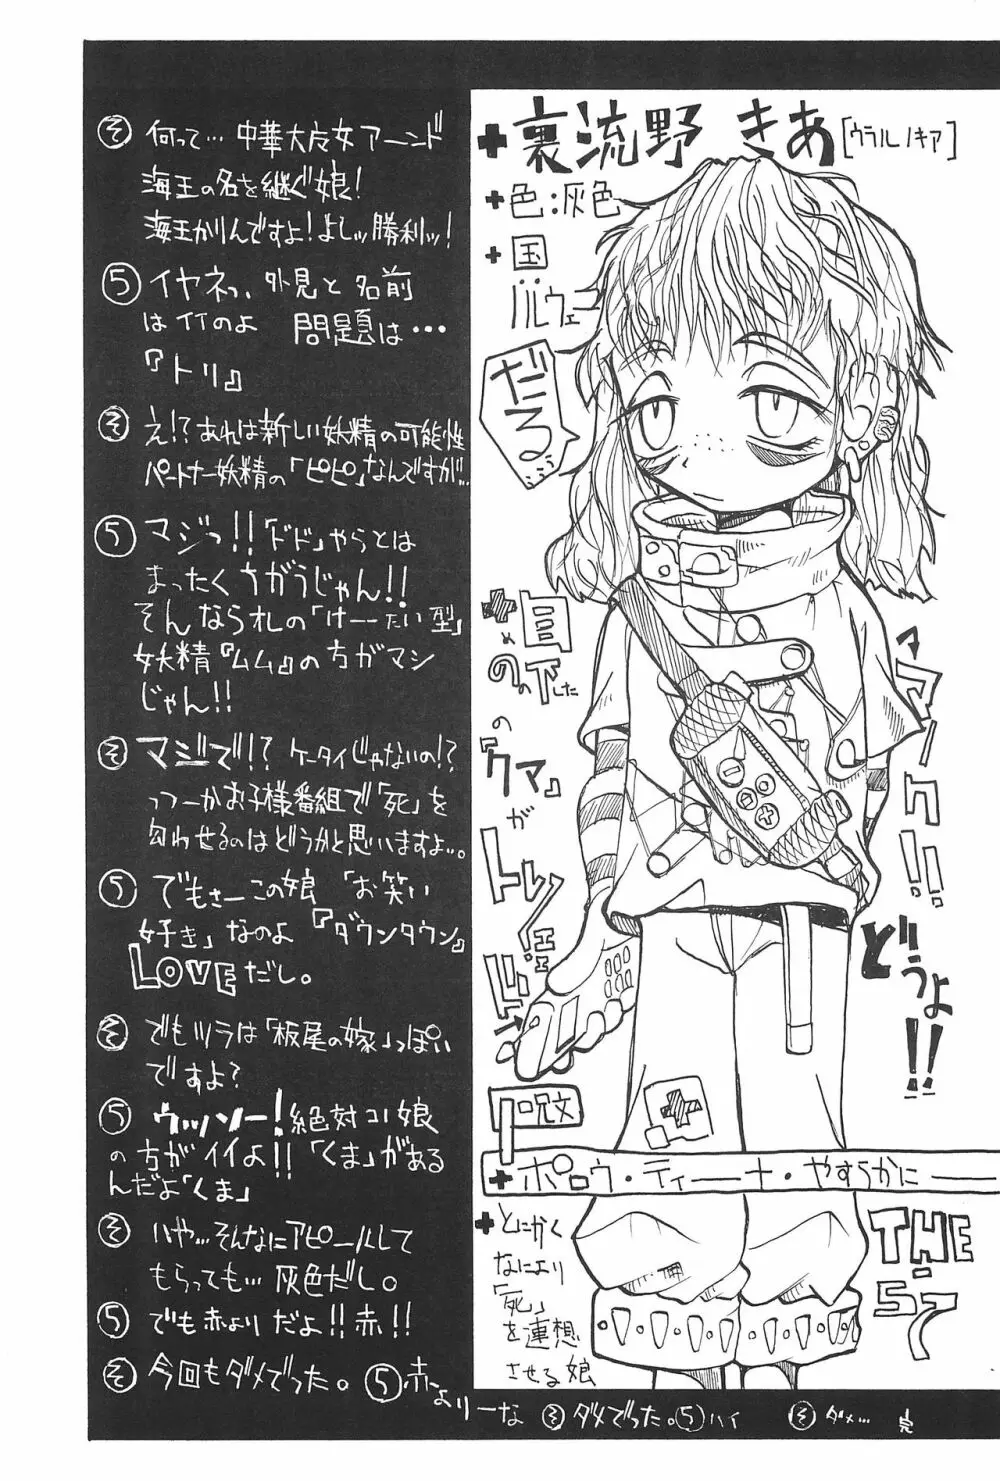 +裏流野 きあ[ウラルノキア]
+色:灰色
+国
ノルウェー
だるぅ…
+目の下の
『クマ』がトレンド
マーク!!
どうよ!!
呪文
+ポロウ・ティーナ・やすらかに
+とにかく
なにより
「死」
を連想
させる娘
THE
57
そ 何って…中華大好女アーンド
海王の名を継ぐ娘!
海王かりんですよ!よしッ勝利ッ!
5 イヤネっ、外見と名前
はイイのよ 問題は…
『トリ』
そ え!?あれは新しい妖精の可能性
パートナー妖精の「ピピ」なんですが…
5 マジっ!!「ドド」やらとは
まったくちがうじゃん!!
そんならオレの「けーたい型」
妖精『ムム』の方がマシ
じゃん!!
そ マジで!?ケータイじゃないの!?
っつーかお子様番組で「死」を
匂わせるのはどうかと思いますよ…。
5 でもさーこの娘「お笑い
好き」なのよ『ダウンタウン』
LOVEだし。
そ でもツラは「板尾の嫁」っぽい
ですよ?
5 ウッソー!絶対コノ娘
の方がイイよ!!「くま」がある
んだよ「くま」
そ いや…そんなにアピールして
もらっても…灰色だし。
5 でも赤よりだよ!!赤!!
そ 今回もダメでった。
5 赤よりーな
そ ダメでった。
5 ハイ
そ ダメ…
完